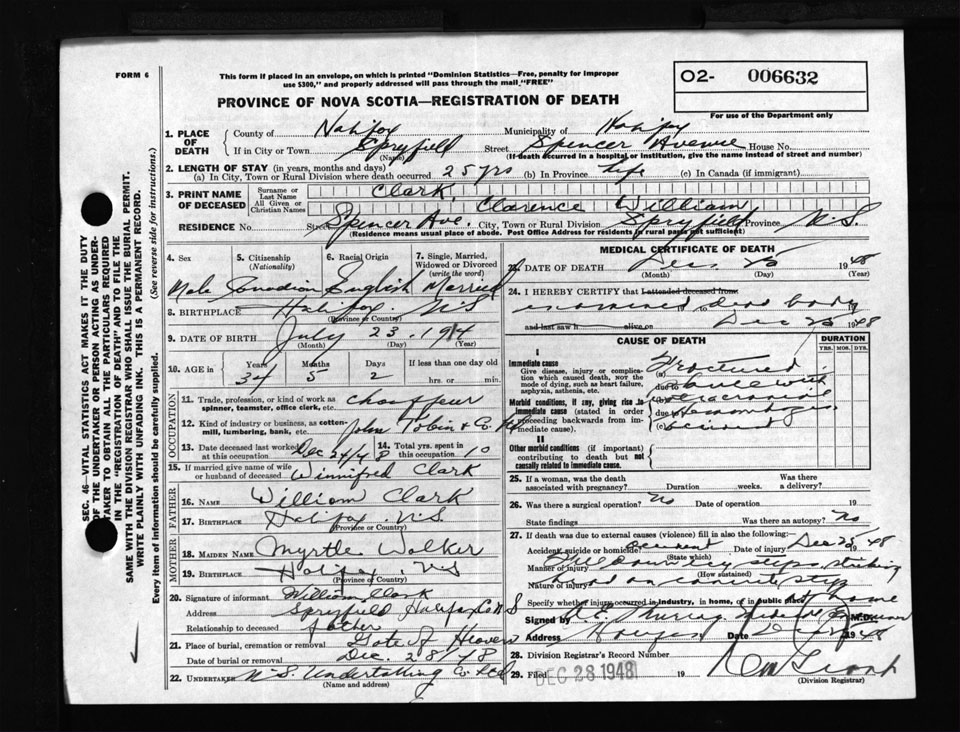 FORM 6
This form if placed in an envelope, on which is printed "Dominion Statistics—Free, penalty for improper
use $300," and properly addressed will pass through the mail "FREE"
O2- 006632
For use of the Department only
PROVINCE OF NOVA SCOTIA—REGISTRATION OF DEATH
SEC. 46—VITAL STATISTICS ACT MAKES IT THE DUTY
OF THE UNDERTAKER OR PERSON ACTING AS UNDER-
TAKER TO OBTAIN ALL THE PARTICULARS REQUIRED
IN THE "REGISTRATION OF DEATH" AND TO FILE THE
SAME WITH THE DIVISION REGISTRAR WHO SHALL ISSUE THE BURIAL PERMIT.
WRITE PLAINLY WITH UNFADING INK. THIS IS A PERMANENT RECORD.
Every item of information should be carefully supplied. (See reverse side for instructions.)
1. PLACE OF DEATH County of Halifax Municipality of Halifax
If in City or Town Spryfield (Name) Street Spencer Avenue House No.
(If death occurred in a hospital or institution, give the name instead of street and number)
2. LENGTH OF STAY (in years, months and days)
(a) In City, Town or Rural Division where death occurred 25 yrs (b) In Province life (c) In Canada (if immigrant)
3. PRINT NAME OF DECEASED Surname or Last Name Clark
All Given or Christian Names Clarence William
RESIDENCE No. Street Spencer Ave. City, Town or Rural Division Spryfield Province N.S.
(Residence means usual place of abode. Post Office Address for residents in rural parts not sufficient)
4. Sex 5. Citizenship (Nationality) 6. Racial Origin 7. Single, Married, Widowed or Divorced (write the word)
Male Canadian English Married
8. BIRTHPLACE Halifax N.S.
(Province or Country)
9. DATE OF BIRTH July 23, 1914
(Month) (Day) (Year)
10. AGE in Years Months Days If less than one day old
34 5 2 hrs. or min.
OCCUPATION
11. Trade, profession, or kind of work as spinner, teamster, office clerk, etc. Chauffeur
12. Kind of industry or business, as cotton-mill, lumbering, bank, etc. John Tobin & Co.
13. Date deceased last worked at this occupation Dec 24/48 14. Total yrs. spent in this occupation 10
15. If married give name of wife or husband of deceased Winnifred Clark
FATHER
16. NAME William Clark
17. BIRTHPLACE Halifax N.S.
(Province or Country)
MOTHER
18. MAIDEN NAME Myrtle Walker
19. BIRTHPLACE Halifax NS
(Province or Country)
20. Signature of informant William Clark
Address Spryfield Halifax Co NS
Relationship to deceased father
21. Place of burial, cremation or removal Gate of Heaven
Date of burial or removal Dec. 28/48
22. UNDERTAKER N.S. Undertaking Co Ltd
(Name and address)
MEDICAL CERTIFICATE OF DEATH
23. DATE OF DEATH Dec. 25 1948
(Month) (Day) (Year)
24. I HEREBY CERTIFY that I attended deceased from
examined dead body
and last saw h alive on Dec 25 1948
CAUSE OF DEATH DURATION
YRS. MOS. DYS.
I
Immediate cause
Give disease, injury or complication which caused death, not the mode of dying, such as heart failure, asphyxia, asthenia, etc.
(a) Fractured
due to
Morbid conditions, if any, giving rise to immediate cause (stated in order proceeding backwards from immediate cause).
(b) intracranial
due to hemorrhage
(c) accident
II
Other morbid conditions (if important) contributing to death but not causally related to immediate cause.
25. If a woman, was the death associated with pregnancy? Duration weeks. Was there a delivery?
26. Was there a surgical operation? No Date of operation 19
State findings Was there an autopsy? No
27. If death was due to external causes (violence) fill in also the following:—
Accident, suicide or homicide? accident Date of injury Dec 25, 1948
(State which)
Manner of injury Fell down steps striking
(How sustained)
Nature of injury head on concrete step
Specify whether injury occurred in industry, in home, or in public place at home
Signed by Medical Examiner M.D.
Address Date 1948
28. Division Registrar's Record Number
29. Filed DEC 28 1948 19
(Division Registrar)